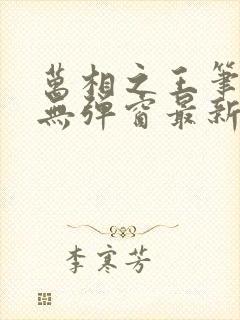 萬相之王筆
無彈窗最新
李寒芳